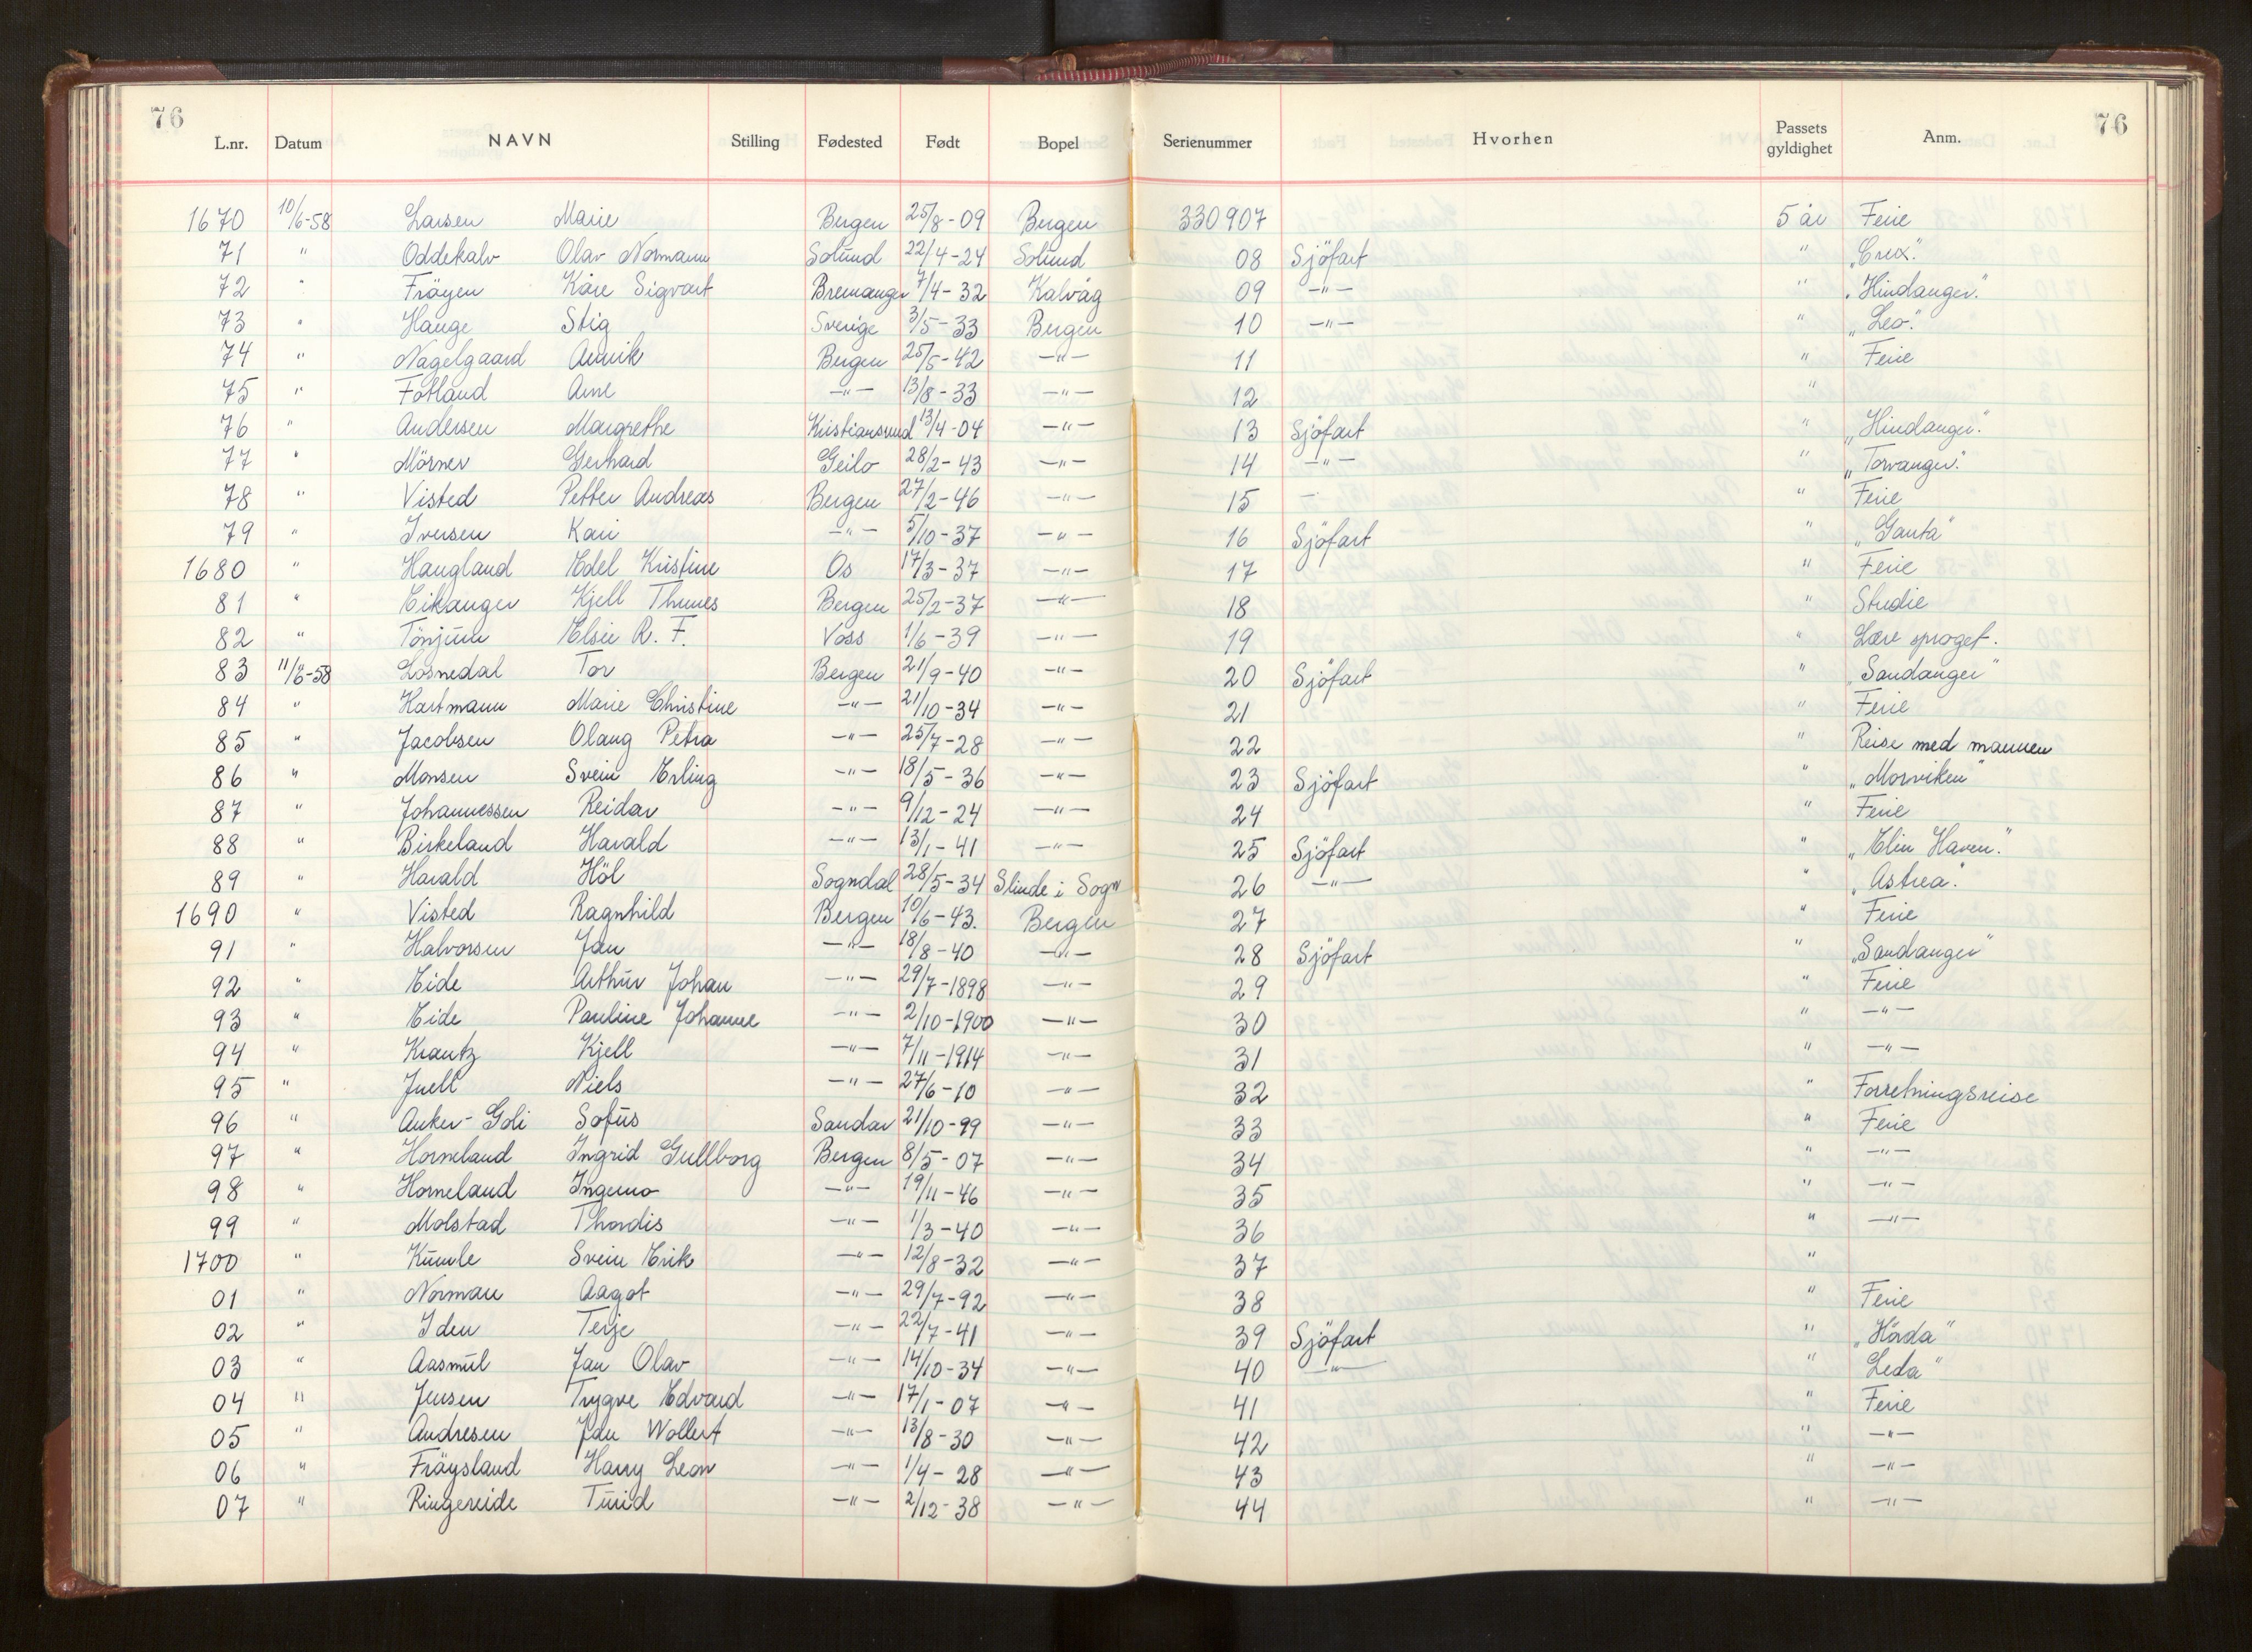 76 76
L.nr. Datum NAVN Stilling Fødested Født Bopel Serienummer Hvorhen Passets gyldighet Anm.
1670 10/6-58 Larsen Marie Bergen 25/8-09 Bergen 330907 5 år Ferie
71 " Oddekalv Olav Normann Solund 22/4-24 Solund 08 Sjöfart " "Crux".
72 " Fröyen Kåre Sigvart Bremanger 7/4-32 Kalvåg 09 -"- " "Hindanger".
73 " Hauge Stig Sverige 3/5-33 Bergen 10 -"- " "Leo".
74 " Nagelgaard Annik Bergen 25/5-42 -"- 11 " Ferie
75 " Fotland Arne -"- 13/8-33 -"- 12 "
76 " Andersen Margrethe Kristiansund 13/4-04 -"- 13 Sjöfart " "Hindanger".
77 " Mörner Gerhard Geilo 28/2-43 -"- 14 -"- " "Torvanger".
78 " Visted Petter Andreas Bergen 27/2-46 -"- 15 - " Ferie
79 " Iversen Kari -"- 5/10-37 -"- 16 Sjöfart " "Ganta"
1680 " Haugland Edel Kristine Os 17/3-37 -"- 17 " Ferie
81 " Eikanger Kjell Thunes Bergen 25/2-37 -"- 18 " Studie
82 " Tönjum Elsie R. F. Voss 1/6-39 -"- 19 " Lære sproget.
83 11/6-58 Losnedal Tor Bergen 21/9-40 -"- 20 Sjöfart " "Sandanger"
84 " Hartmann Marie Christine -"- 21/10-34 -"- 21 " Ferie
85 " Jacobsen Olaug Petra -"- 25/7-28 -"- 22 " Reise med mannen
86 " Monsen Svein Erling -"- 18/5-36 -"- 23 Sjöfart " "Morviken"
87 " Johannessen Reidar -"- 9/12-24 -"- 24 " Ferie
88 " Birkeland Harald -"- 13/1-41 -"- 25 Sjöfart " "Elin Haven".
89 " Harald Höl Sogndal 28/5-34 Slinde i Sogn 26 -"- " "Astrea".
1690 " Visted Ragnhild Bergen 10/6-43. Bergen 27 " Ferie
91 " Halvorsen Jan -"- 18/8-40 -"- 28 Sjöfart " "Sandanger"
92 " Eide Arthur Johan -"- 29/7-1898 -"- 29 " Ferie
93 " Eide Pauline Johanne -"- 2/10-1900 -"- 30 " -"-
94 " Krantz Kjell -"- 7/11-1914 -"- 31 " -"-
95 " Juell Niels -"- 27/6-10 -"- 32 " Forretningsreise
96 " Anker-Goli Sofus Sandar 21/10-99 -"- 33 " Ferie
97 " Horneland Ingrid Gullborg Bergen 8/5-07 -"- 34 " -"-
98 " Horneland Ingemo -"- 19/11-46 -"- 35 " -"-
99 " Molstad Thordis -"- 1/3-40 -"- 36 " -"-
1700 " Kumle Svein Erik -"- 12/8-32 -"- 37 "
01 " Norman Aagot -"- 29/7-92 -"- 38 " Ferie
02 " Iden Terje -"- 22/7-41 -"- 39 Sjöfart " "Hörda"
03 " Aasmul Jan Olav -"- 14/10-34 -"- 40 -"- " Leda"
04 " Jensen Trygve Edvard -"- 17/1-07 -"- 41 " Ferie
05 " Andresen Jan Wollert -"- 13/8-30 -"- 42 " -"-
06 " Fröysland Harry Leon -"- 1/4-28 -"- 43 " -"-
07 " Ringereide Turid -"- 2/12-38 -"- 44 " -"-